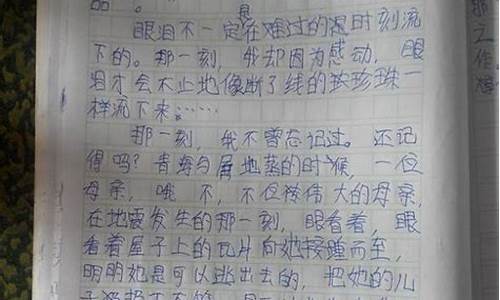 品。
眼泪不一定在难过的是时刻流
下的。那一刻，我却因为感动，眼
泪才会不止地像断了线的珍珠一
样流下来……
那一刻，我不曾忘记过。还记
得吗？青海 地 的时候，一位
母亲，哦 不，不但 伟大的母亲，
在地震发生的那一刻，眼看着，眼
看着屋子上的瓦片向她接踵而至，
明明她是可以逃出去的，把她的儿
作